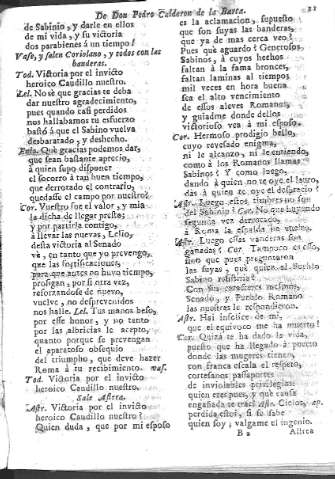 De Don Pedro Calderon de la Barca.
de Sabinio, y darle en ellos
de mi vida, y su victoria
dos parabienes à un tiempo!
Vase, y salen Coriolano, y todos con las
banderas.
Tod. Victoria por el invicto
heroico Caudillo nuestro.
Lel. No sè que gracias te deba
dar nuestro agradecimiento,
pues quando casi perdidos
nos hallabamos tu esfuerzo
bastó á que el Sabino vuelva
desbaratado, y deshecho.
Enio. Què gracias podemos dar,
que sean bastante aprecio,
à quien supo disponer
el socorro à tan buen tiempo,
que derrotado el contrario,
quedasse el campo por nuestro?
Cor. Vuestro fue el valor, y mia
la dicha de llegar presto;
y por partirla contigo,
à llevar las nuevas, Lelio,
desta victoria al Senado
vè, en tanto que yo prevengo,
que las fortificaciones,
para que antes no huvo tiempo,
prosigan, por si otra vez,
reforzandose de nuevo,
vuelve, no desprevenidos
nos halle. Lel. Tus manos beso,
por esse honor, y no tanto
por las albricias le acepto,
quanto porque se prevengan
el aparatoso obsequio
del triumpho, que deve hazer
Roma à tu recibimiento. vas.
Tod. Victoria por el invicto
heroico Caudillo nuestro.
Sale Astrea.
Astr. Victoria por el invicto
heroico Caudillo nuestro!
Quien duda, que por mi esposo
es la aclamacion, supuesto
que son suyas las banderas,
que ya de mas cerca veo?
Pues què aguardo? Generosos,
Sabinos, à cuyos hechos
faltan à la fama bronces,
faltan laminas al tiempo,
mil veces en hora buena
sea el alto vencimiento
de essos aleves Romanos,
y guiadme donde dellos
victorioso vea à mi esposo.
Cor. Hermoso prodigio bello,
cuyo revesado enigma,
ni le alcanzo, ni le entiendo,
como à los Romanos llamas
Sabinos? Y como luego,
dando à quien no te oye el lauro,
das à quien te oye el desprecio?
Astr. Luego estos timbres no son
del Sabinio? Cor. No que huyendo
segunda vez derrotado,
à Roma la espalda ha vuelto.
Astr. Luego essas vanderas son
ganadas? Cor. Tampoco es esso,
sino que pues preguntaron
las suyas, què quien al Pueblo
Sabino resistiria?
Con sus caracteres mesmos,
Senado, y Pueblo Romano
las nuestras le respondieron.
Astr. Hai infelice de mi,
que el equivoco me ha muerto!
Cor. Quizà te ha dado la vida,
puesto que ha llegado à puerto
donde las mugeres tienen,
con franca escala el respeto,
cortesanos passaportes
de inviolables privilegios:
quien eres pues, y què causa
engañada te trae? Astr. Cielos, ap.
perdida estoi, si se sabe
quien soy; valgame el ingenio.
B 2
Allica